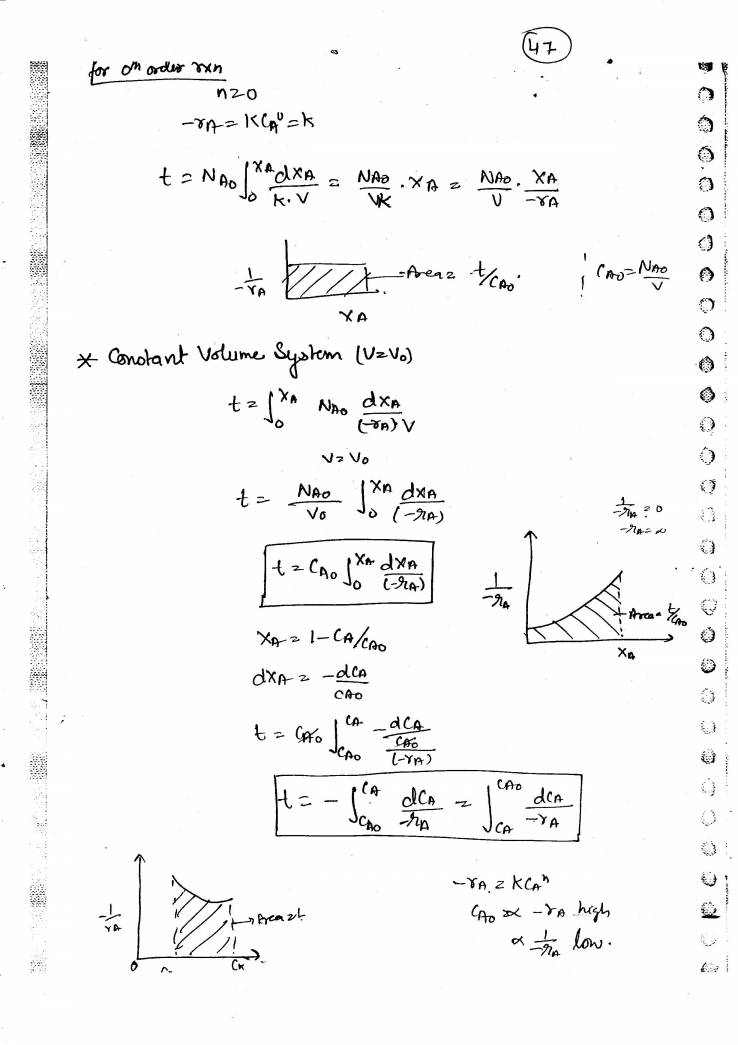 47
for 0th order rxn
n=0
-rA = KCA^0 = k
t = NA0 ∫_0^XA dXA/(k.V) = NA0/(VK) . XA = NA0/V . XA/(-rA)
1/(-rA)
Area = t/CA0.
CA0 = NA0/V
XA
* Constant Volume System (V=V0)
t = ∫_0^XA NA0 dXA/((-rA)V)
V=V0
t = NA0/V0 ∫_0^XA dXA/(-rA)
1/(-rA) = 0
-rA = ∞
t = CA0 ∫_0^XA dXA/(-rA)
1/(-rA)
Area = t/CA0
XA
XA = 1-CA/CA0
dXA = -dCA/CA0
t = CA0 ∫_CA0^CA (-dCA/CA0)/(-rA)
t = - ∫_CA0^CA dCA/(-rA) = ∫_CA^CA0 dCA/(-rA)
-rA = KCA^n
CA0 ∝ -rA high
∝ 1/(-rA) low.
1/(-rA)
Area=t
0